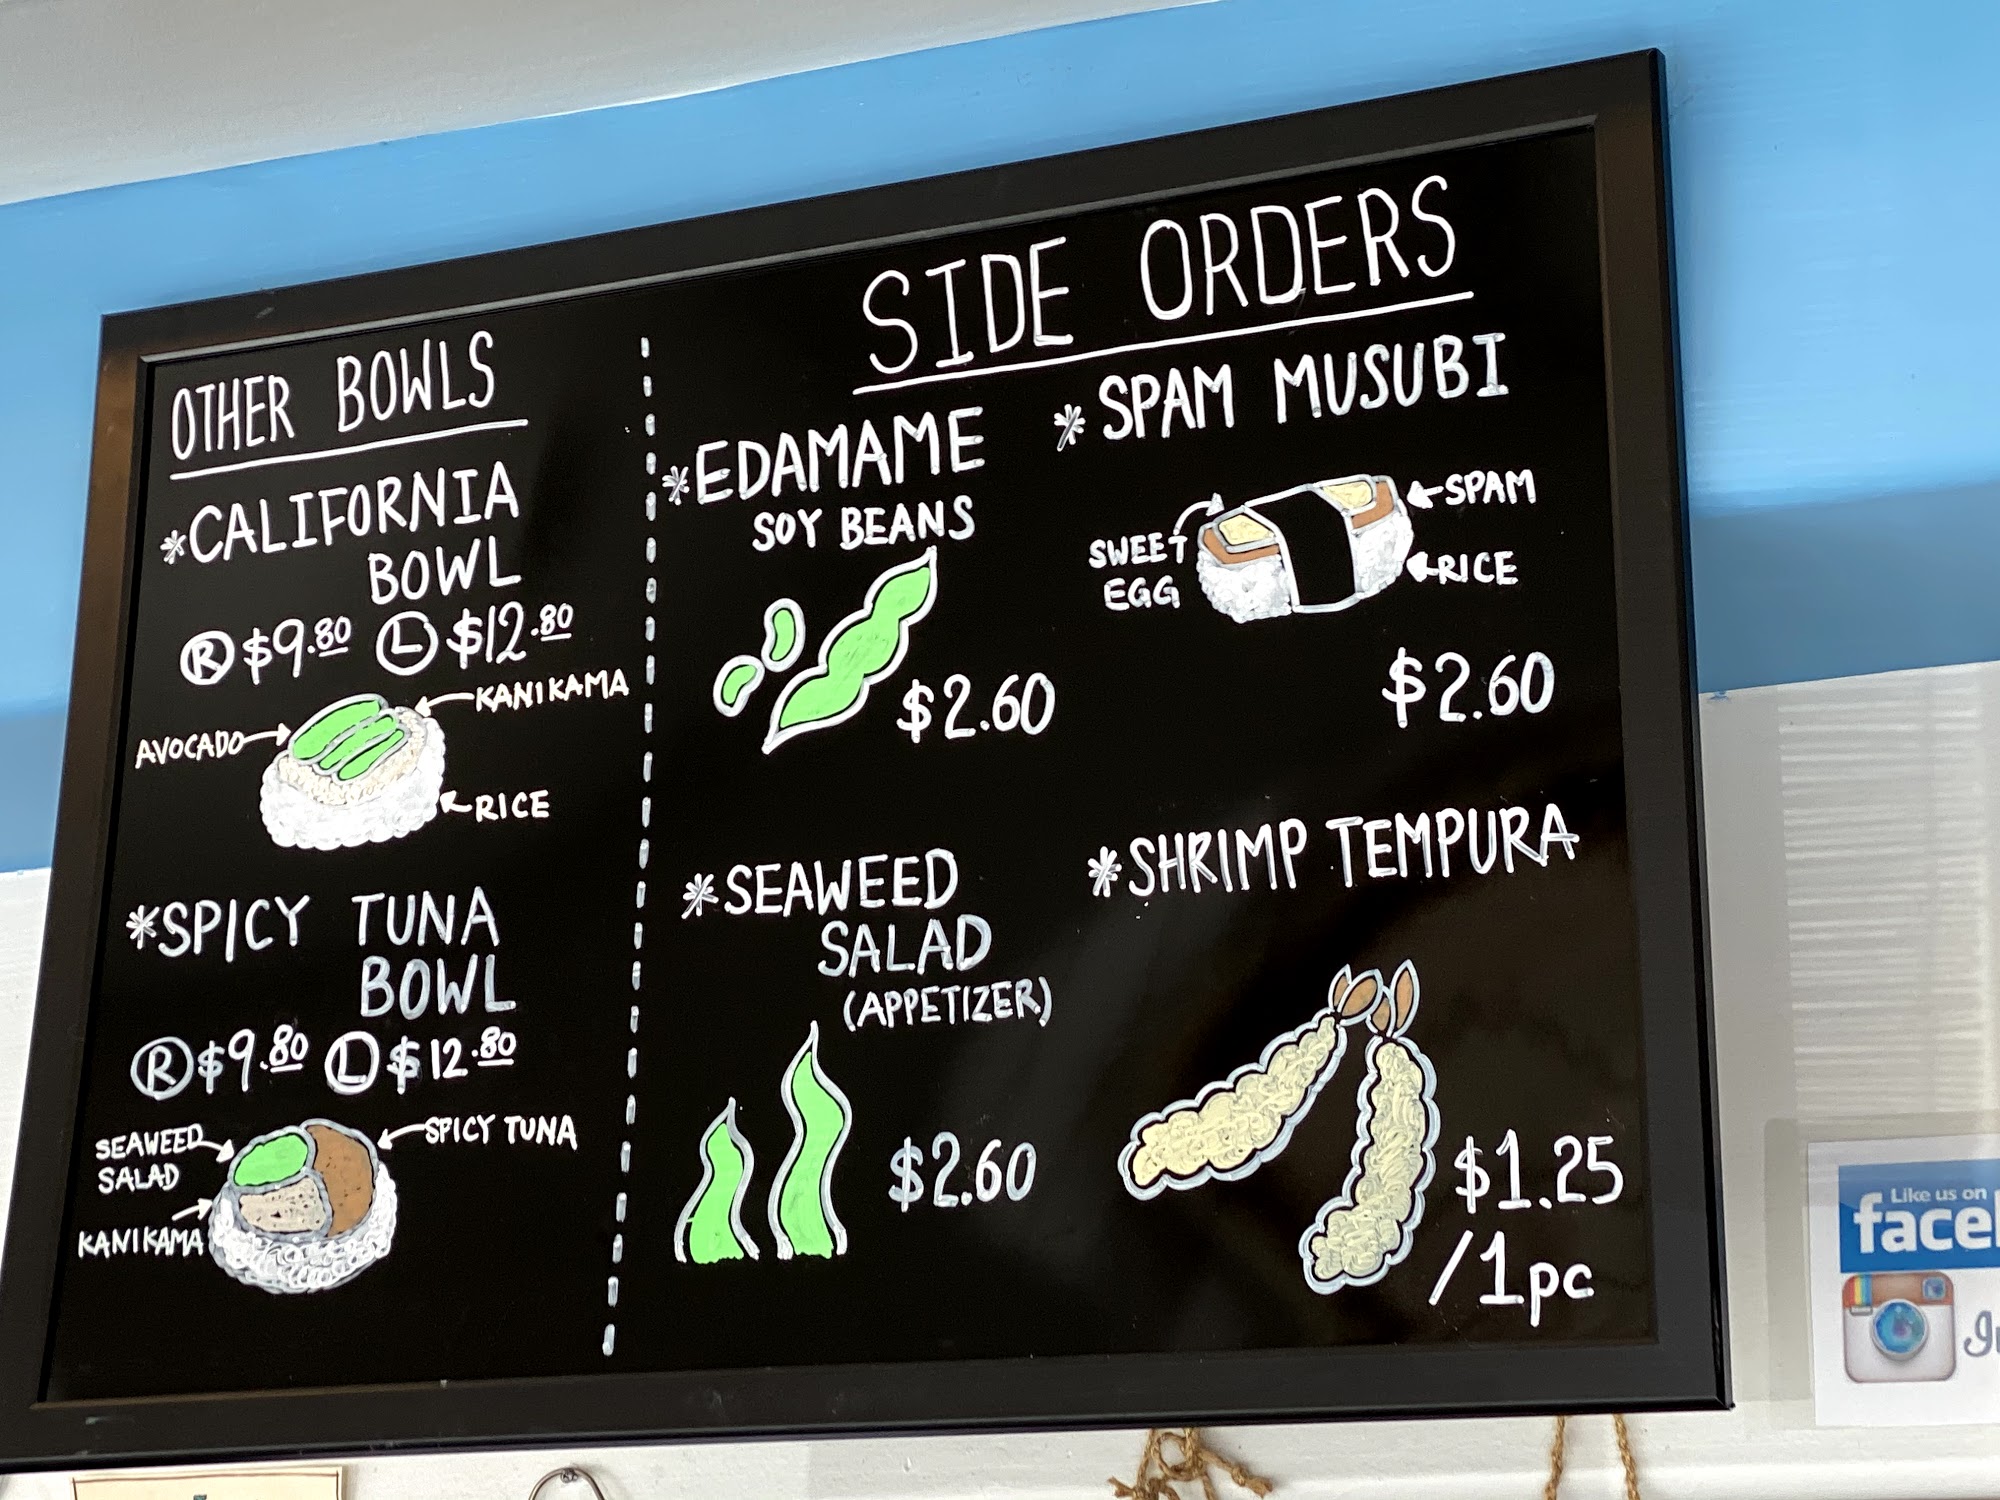 OTHER BOWLS
*CALIFORNIA
BOWL
Ⓡ $9.80 Ⓛ $12.80
KANIKAMA
AVOCADO
RICE
*SPICY TUNA
BOWL
Ⓡ $9.80 Ⓛ $12.80
SEAWEED
SALAD
SPICY TUNA
KANIKAMA
SIDE ORDERS
*EDAMAME
SOY BEANS
$2.60
*SPAM MUSUBI
SPAM
SWEET
EGG
RICE
$2.60
*SEAWEED
SALAD
(APPETIZER)
$2.60
*SHRIMP TEMPURA
$1.25
/1pc
Like us on